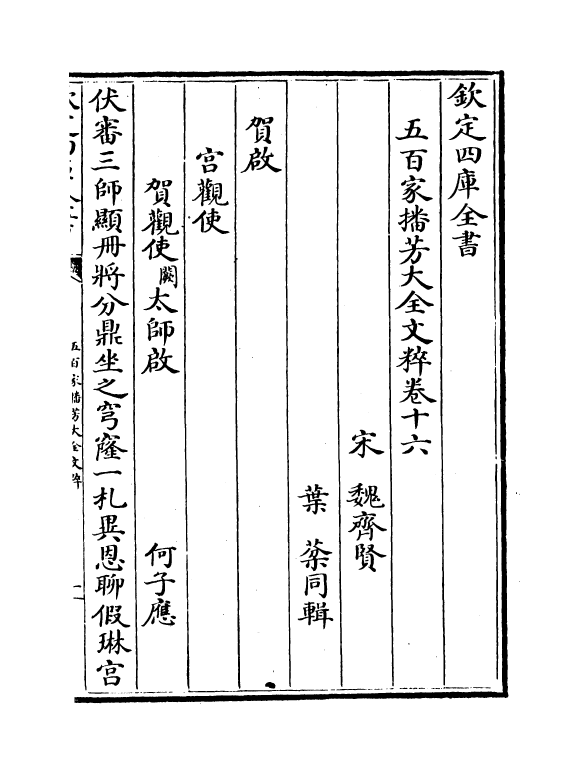 欽定四庫全書
五百家播芳大全文粹卷十六
宋 魏齊賢
葉 棻同輯
賀啟
宫觀使
賀觀使闕太師啟 何子應
伏審三師顯冊將分鼎坐之穹窿一札異恩聊假琳宫
五百家播芳大全文粹